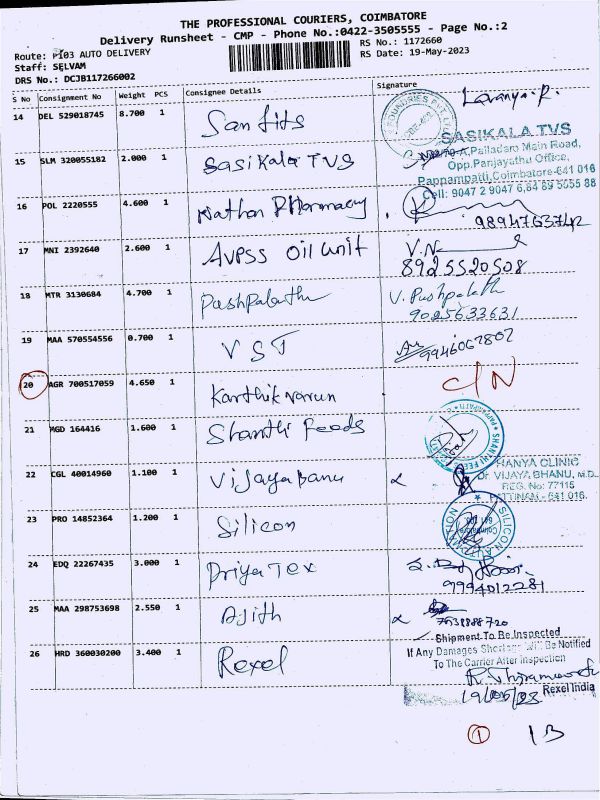 THE PROFESSIONAL COURIERS, COIMBATORE
Delivery Runsheet - CMP - Phone No.:0422-3505555 - Page No.:2
Route: P103 AUTO DELIVERY
RS No.: 1172660
Staff: SELVAM
RS Date: 19-May-2023
DRS No.: DCJB117266002
S No Consignment No Weight PCS Consignee Details Signature
14 DEL 529018745 8.700 1 San fits Lavanya.R.
SASIKALA TVS
Palladam Main Road,
15 SLM 320055182 2.000 1 Sasikala TVS
Opp.Panjayathu Office,
Pappampatti,Coimbatore-641 016
Cell: 9047 2 9047 6,
16 POL 2220555 4.600 1 Nathan Pharmacy
9894763742
17 MNI 2392640 2.600 1 AVPSS oil unit V.N
8925520508
18 MTR 3130684 4.700 1 Pushpalatha V. Pushpalatha
9025633631
19 MAA 570554556 0.700 1 VST
9946062802
20 AGR 700517059 4.650 1 Karthik varun C/N
21 MGD 164416 1.600 1 Shanthi Feeds
22 CGL 40014960 1.100 1 Vijaya banu
HANYA CLINIC
Dr. VIJAYA BHANU, M.D.,
REG. No: 77115
PATTINAM - 641 016.
23 PRO 14852364 1.200 1 Silicon
SILICON
24 EDQ 22267435 3.000 1 Priya Tex
9994012281
25 MAA 298753698 2.550 1 Ajith
7538888720
Shipment To Be Inspected
26 HRD 360030200 3.400 1 Rexel
If Any Damages Shortage Will Be Notified
To The Carrier After Inspection
19/05/23 Rexel India
1 13